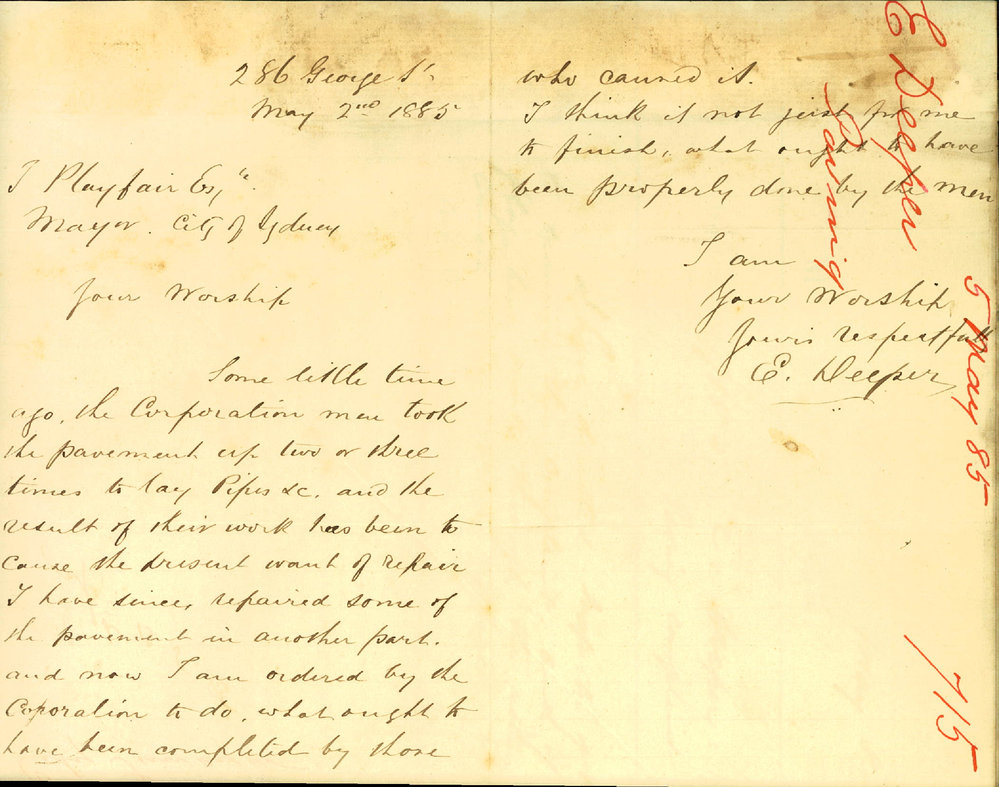 286 George St
May 2nd 1885
T Playfair Esqre.
Mayor. City of Sydney
Your Worship
Some little time
ago, the Corporation men took
the pavement up two or three
times to lay Pipes &c. and the
result of their work has been to
cause the present want of repair
I have since, repaired some of
the pavement in another part.
and now I am ordered by the
Coporation to do, what ought to
have been completed by those
who caused it.
I think it not just for me
to finish, what ought to have
been properly done by the men
I am
Your Worship
Yours respectfull
E. Deeper
E Deeper
Paving
5 May 85
715